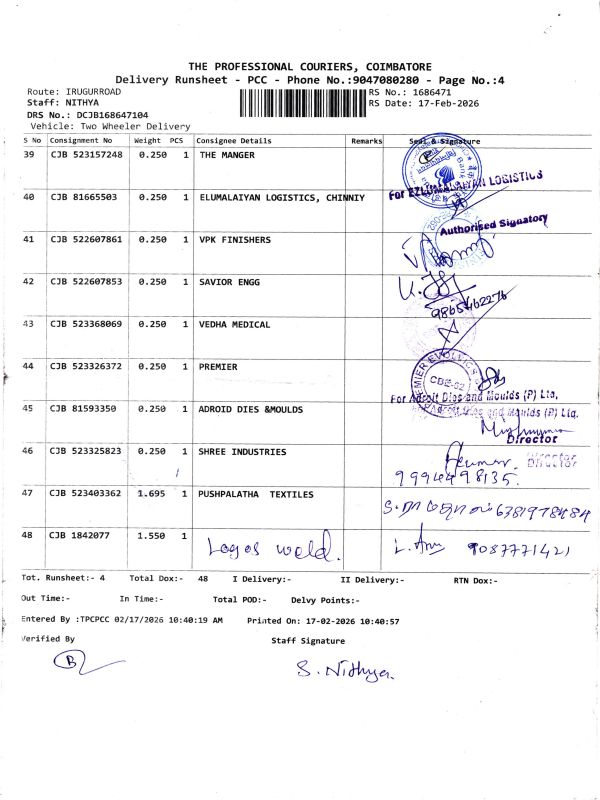 THE PROFESSIONAL COURIERS, COIMBATORE
Delivery Runsheet - PCC - Phone No.:9047080280 - Page No.:4
Route: IRUGURROAD
RS No.: 1686471
Staff: NITHYA
RS Date: 17-Feb-2026
DRS No.: DCJB168647104
Vehicle: Two Wheeler Delivery
S No Consignment No Weight PCS Consignee Details Remarks Seal & Signature
39 CJB 523157248 0.250 1 THE MANGER
40 CJB 81665503 0.250 1 ELUMALAIYAN LOGISTICS, CHINNIY
For EZLUMALAIYAN LOGISTICS
Authorised Signatory
41 CJB 522607861 0.250 1 VPK FINISHERS
42 CJB 522607853 0.250 1 SAVIOR ENGG
9865462276
43 CJB 523368069 0.250 1 VEDHA MEDICAL
44 CJB 523326372 0.250 1 PREMIER
PREMIER EVOLVICS
CBE-62
For Adroit Dies and Moulds (P) Ltd,
45 CJB 81593350 0.250 1 ADROID DIES &MOULDS
Adroit Dies and Moulds (P) Ltd,
Director
Director
46 CJB 523325823 0.250 1 SHREE INDUSTRIES
9994498135.
47 CJB 523403362 1.695 1 PUSHPALATHA TEXTILES
6381978484
48 CJB 1842077 1.550 1 Logos weld. 9087771421
Tot. Runsheet:- 4 Total Dox:- 48 I Delivery:- II Delivery:- RTN Dox:-
Out Time:- In Time:- Total POD:- Delvy Points:-
Entered By :TPCPCC 02/17/2026 10:40:19 AM Printed On: 17-02-2026 10:40:57
Verified By Staff Signature
B
S. Nithya.